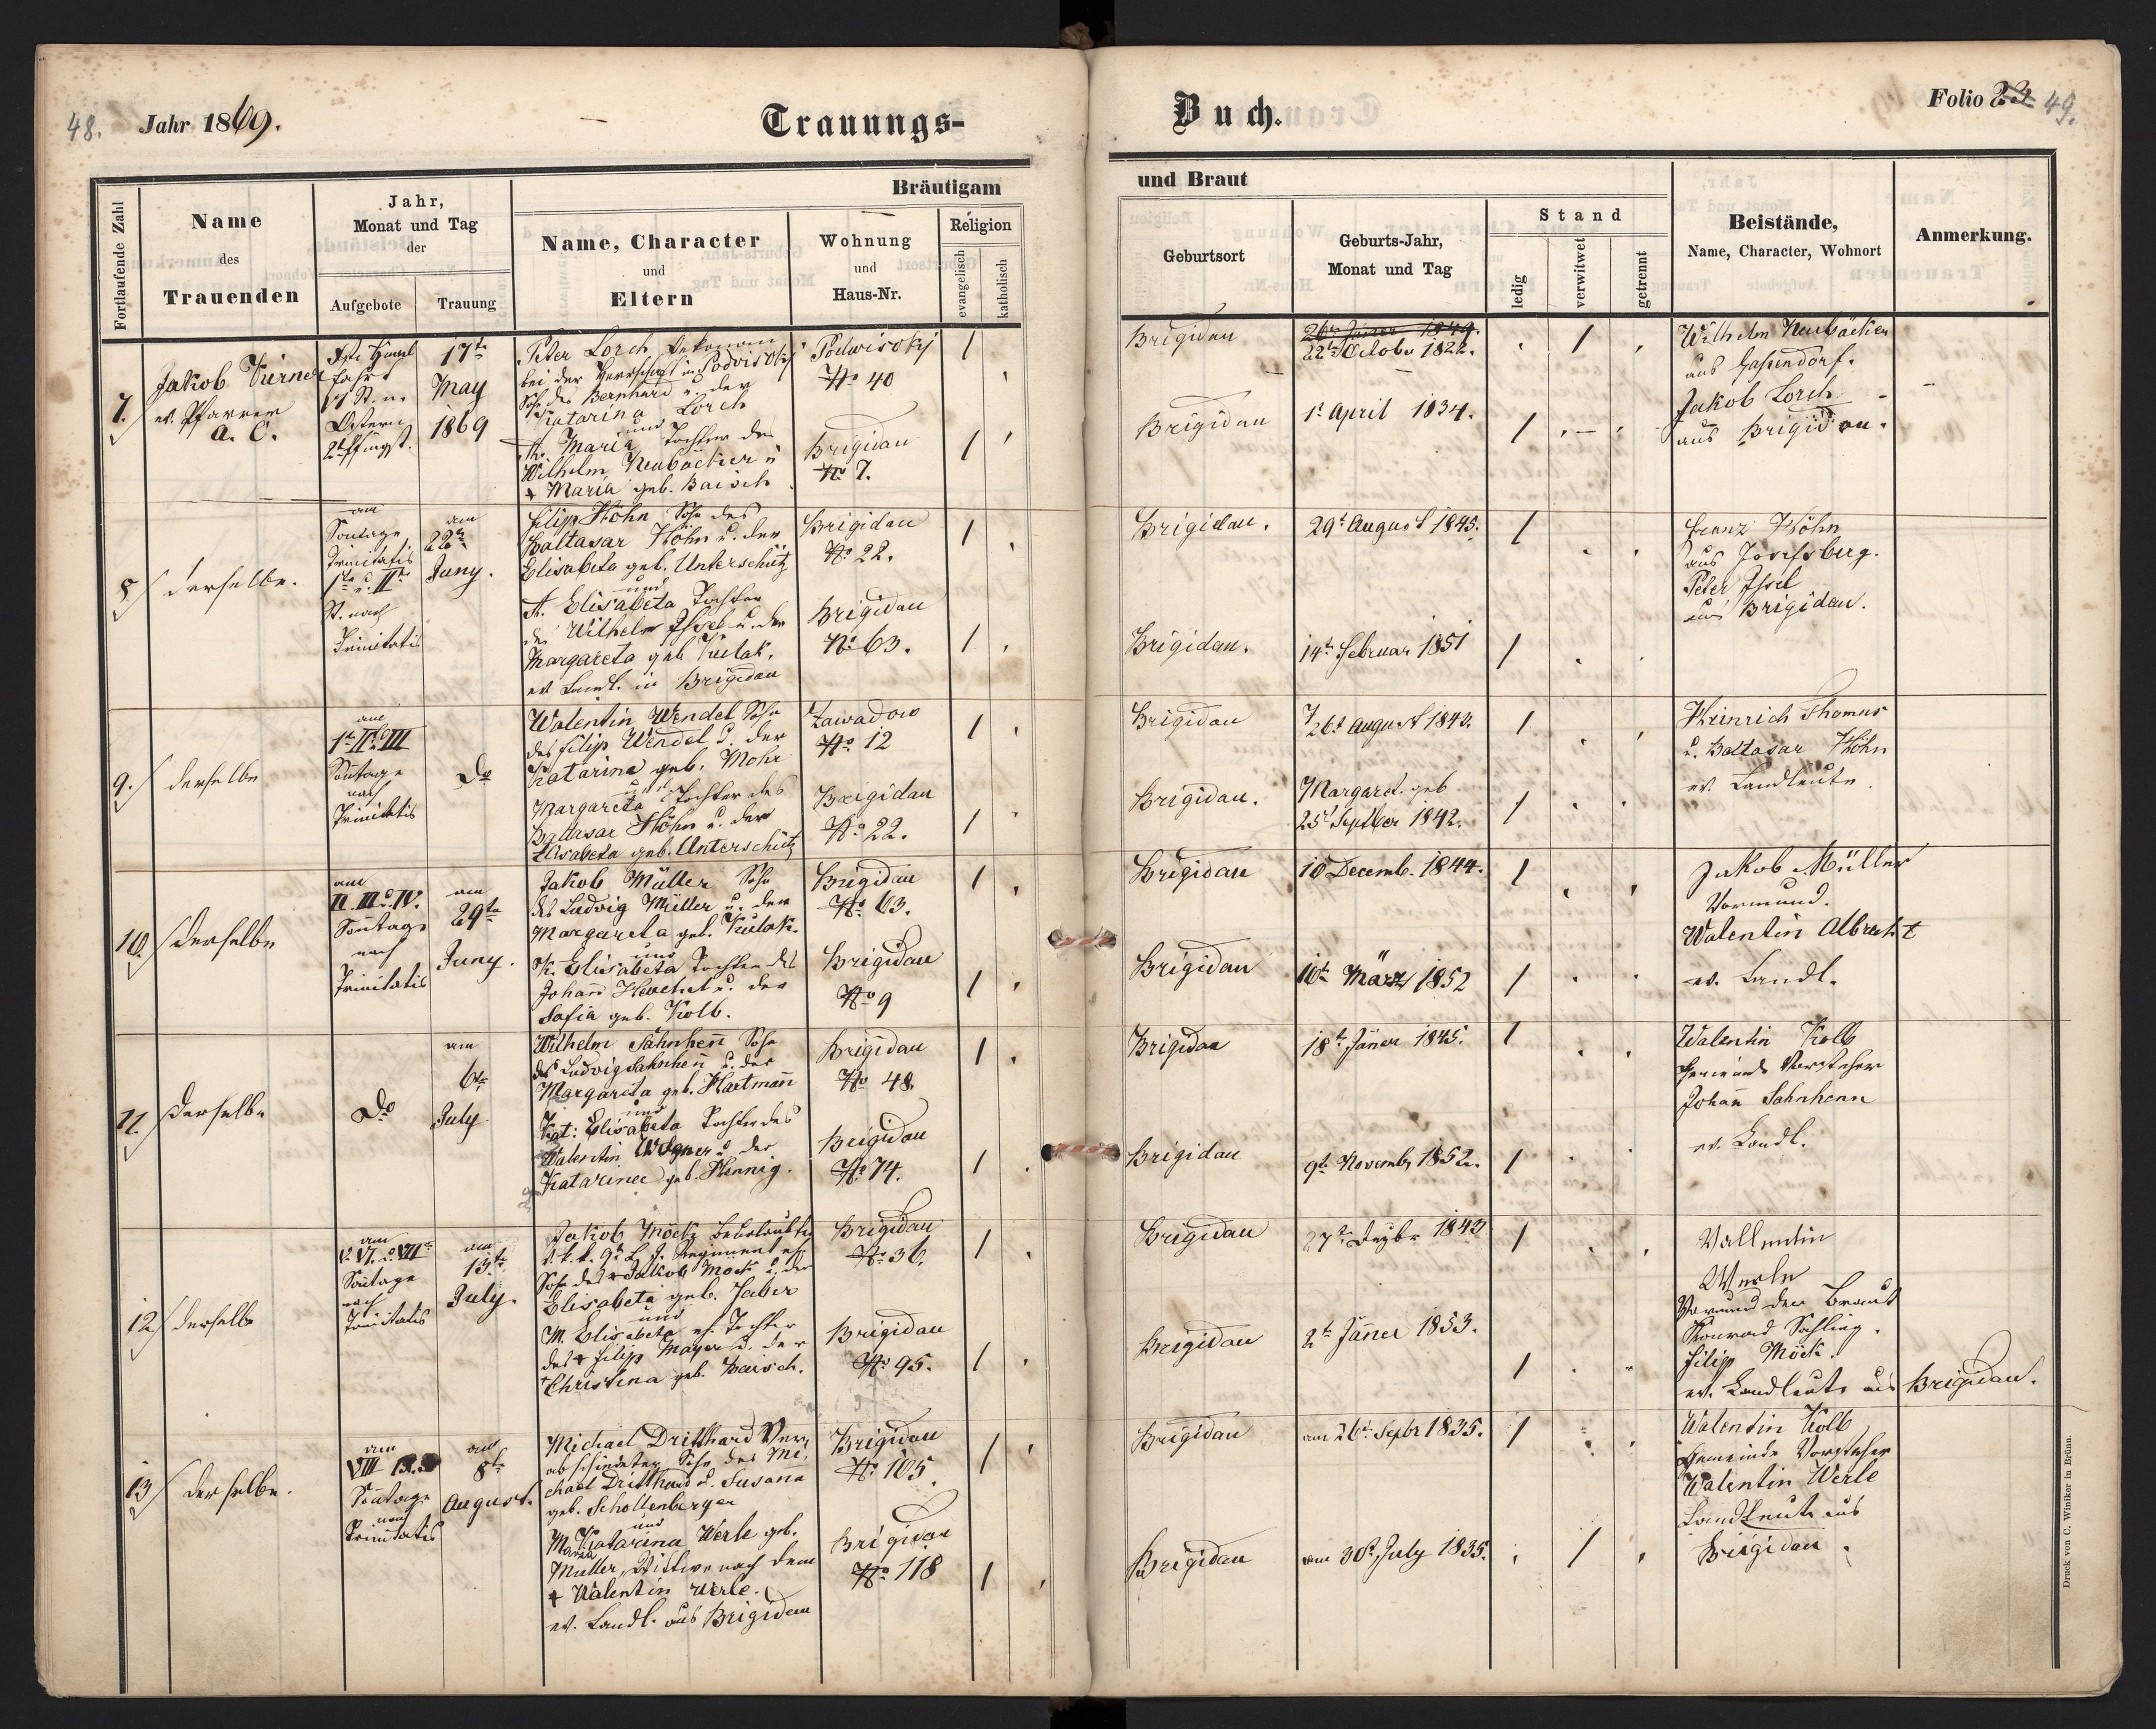 48.
Jahr 1869.
Trauungs-
Buch.
Folio 23 49.
Bräutigam
und Braut
Fortlaufende Zahl
Name
des
Trauenden
Jahr,
Monat und Tag
der
Aufgebote
Trauung
Name, Character
und
Eltern
Wohnung
und
Haus-Nr.
Religion
evangelisch
katholisch
Geburtsort
Geburts-Jahr,
Monat und Tag
Stand
ledig
verwitwet
getrennt
Beistände,
Name, Character, Wohnort
Anmerkung.
7.
Jakob
ev. Pfarrer
a. C.
fahrt
Ostern
17te
May
1869
Peter Lorch Oekonom
bei der Herrschaft in Podvisoky
Sohn des Bernhard u. der
Katarina Lorch
und
Maria Tochter des
Wilhelm Neubäcker u
+ Maria geb. Baisch
Podwisoky
No 40
Brigidau
No 7.
Brigidau
26n Jäner 1849.
22te October 1822.
Brigidau
1t April 1834.
Wilhelm Neubäcker
aus Gassendorf.
Jakob Lorch
aus Brigidau.
8
derselbe.
am
Sontage
Trinitatis
1te u. IIte
St. nach
Trinitatis
am
22te
Juny.
Filip Höhn Sohn des
Baltasar Höhn u. der
Elisabeta geb. Unterschütz
und
A. Elisabeta Tochter
des Wilhelm Issel u. der
Margareta geb Kulak,
ev Landl. in Brigidau
Brigidau
No 22.
Brigidau
No 63.
Brigidau.
29t August 1845.
Brigidau.
14te Februar 1851
Franz Höhn
aus Josefsberg.
Peter Issel
aus Brigidau.
9.
derselbe
am
1te II u III
Sontage
nach
Trinitatis
Do
Walentin Wendel Sohn
des Filip Wendel u. der
Katarina geb. Mohr
u
Margareta Tochter des
Baltasar Höhn u. der
Elisabeta geb. Unterschütz
Zawadow
No 12
Brigidau
No 22.
Brigidau
26t August 1842.
Brigidau.
Margaret. geb
25t Septber 1842.
Heinrich Thomas
u. Baltasar Höhn
ev. Landleute.
10.
derselbe
am
II. III u. IV.
Sontage
nach
Trinitatis
am
29te
Juny.
Jakob Müller Sohn
des Ludwig Müller u. der
Margareta geb. Kulak.
und
K. Elisabeta Tochter des
Johan u. der
Sofia geb. Kolb.
Brigidau
No 63.
Brigidau
No 9
Brigidau
10 Decemb. 1844.
Brigidau
10te März 1852
Jakob Müller
Vormund.
Walentin Albrecht
ev. Landl.
11.
derselbe
Do
am
6te
July
Wilhelm Sahnhen Sohn
des Ludwig Sahnhen u. der
Margareta geb. Hartman
und
Kat: Elisabeta Tochter des
Walentin Wagner u. der
Katarina geb. Hennig.
Brigidau
No 48.
Brigidau
No 74.
Brigidau
18te Jäner 1845.
Brigidau
9te Novemb. 1852.
Walentin Kolb
Gemeinde Vorsteher
Johan Sahnhenn
ev. Landl.
12.
derselbe
am
V. VI. u VIIte
Sontage
nach
Trinitatis
am
13te
July.
Jakob Möck Beurlaubter
Sohn des + Jakob Möck u. der
Elisabeta geb. Faber
und
M. Elisabeta eh. Tochter
des + Filip Mayer u. der
+ Christina geb. Baisch.
Brigidau
No 36.
Brigidau
No 95.
Brigidau
27te Dezbr 1843
Brigidau
2te Jäner 1853.
Vallentin
Werle
Vormund der Braut
Konrad
Filip Möck.
ev. Landleute aus Brigidau.
13
derselbe.
am
VIII IX.
Sontage
nach
Trinitatis
am
8te
August.
Michael Dritthard Ver-
abschiedeter Sohn des Mi-
chael Dritthard u. Susana
geb. Schollenberger
und
M. Katarina Werle geb.
Maria
Müller, Wittwe nach dem
+ Walentin Werle.
ev. Landl. aus Brigidau
Brigidau
No 105.
Brigidau
No 118
Brigidau
am 26t Septr 1835.
Brigidau
am 30t July 1835.
Walentin Kolb
Gemeinde Vorsteher
Walentin Werle
Landleute aus
Brigidau.
Druck von C. Winiker in Brünn.